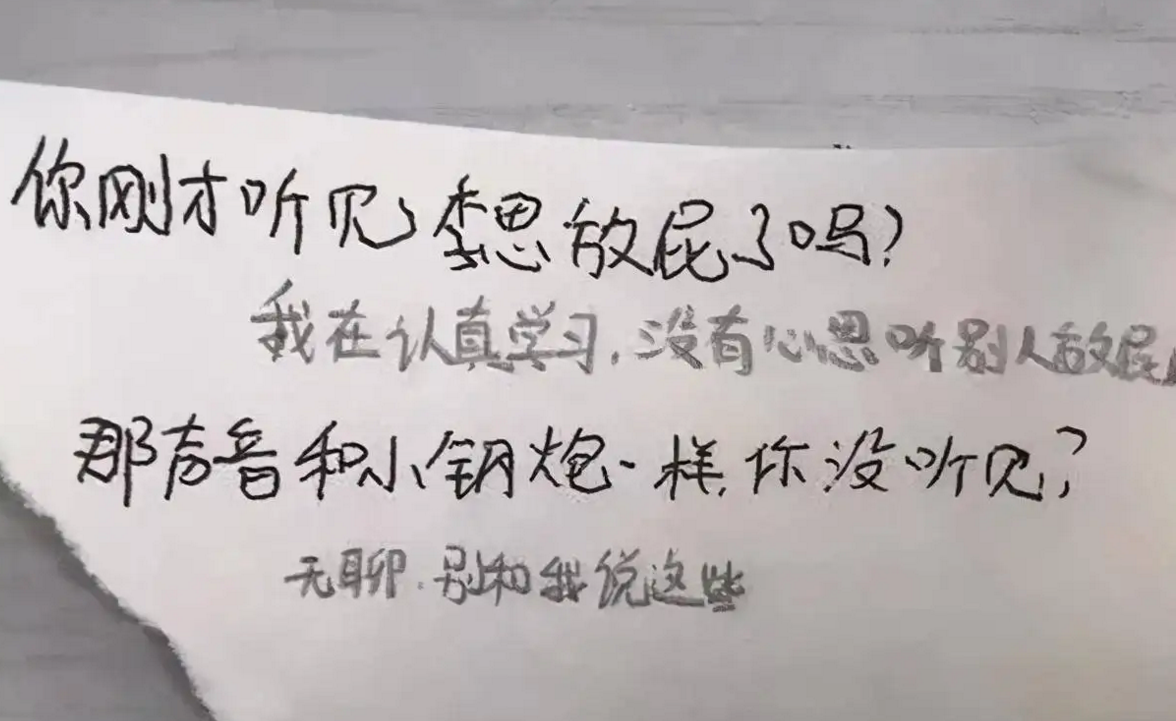 你刚才听见李思放屁了吗?
我在认真学习,没有心思听别人放屁
那声音和小钢炮一样,你没听见?
无聊.别和我说这些